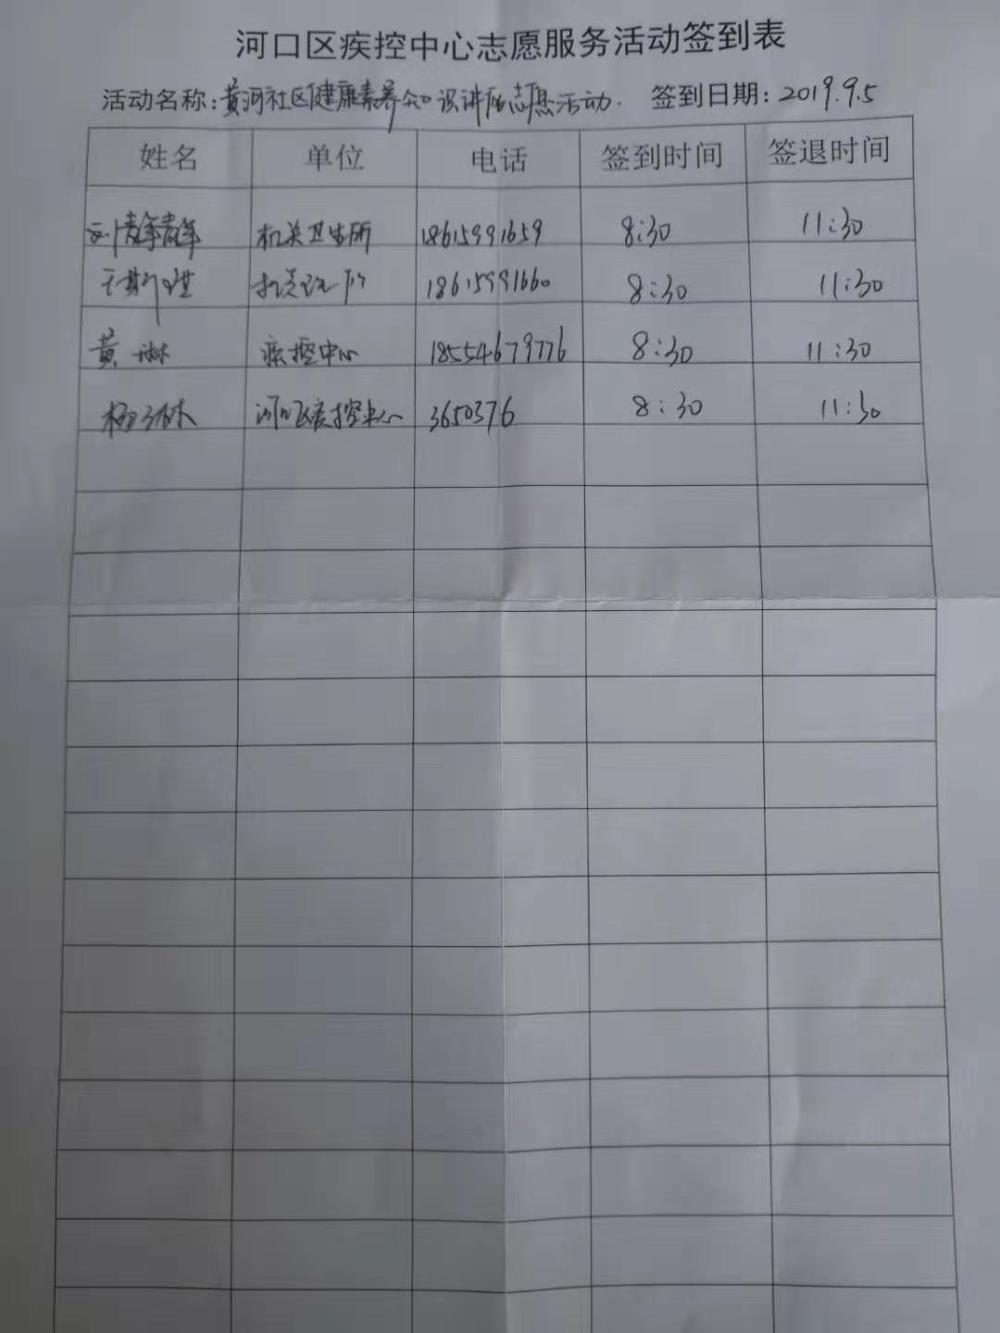 河口区疾控中心志愿服务活动签到表
活动名称:黄河社区健康素养知识讲座志愿活动. 签到日期:2019.9.5
姓名 单位 电话 签到时间 签退时间
机关卫生所 18615991659 8:30 11:30
18615991660 8:30 11:30
黄琳 疾控中心 18554679776 8:30 11:30
河口区疾控中心 3650376 8:30 11:30